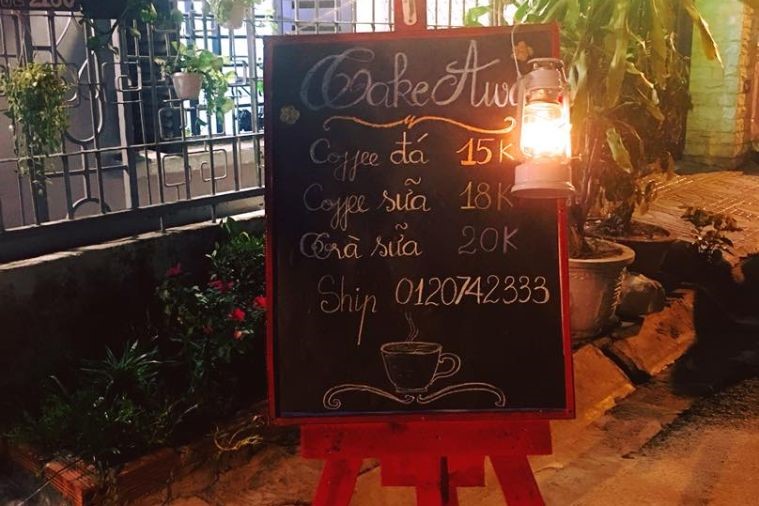 Take Awa
Coffee đá 15K
Coffee sữa 18K
Trà sữa 20K
Ship 0120742333